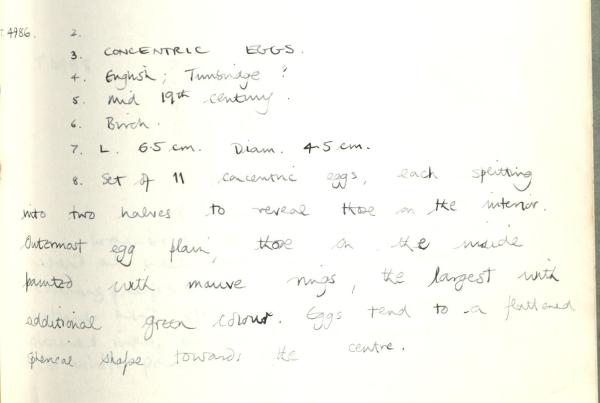 T. 4986. 2.
3. CONCENTRIC EGGS.
4. English; Tunbridge ?
5. Mid 19th century.
6. Birch.
7. L. 6.5 cm. Diam. 4.5 cm.
8. Set of 11 concentric eggs, each splitting
into two halves to reveal those on the interior.
Outermost egg plain, those on the inside
painted with mauve rings, the largest with
additional green colour. Eggs tend to a flattened
spherical shape towards the centre.